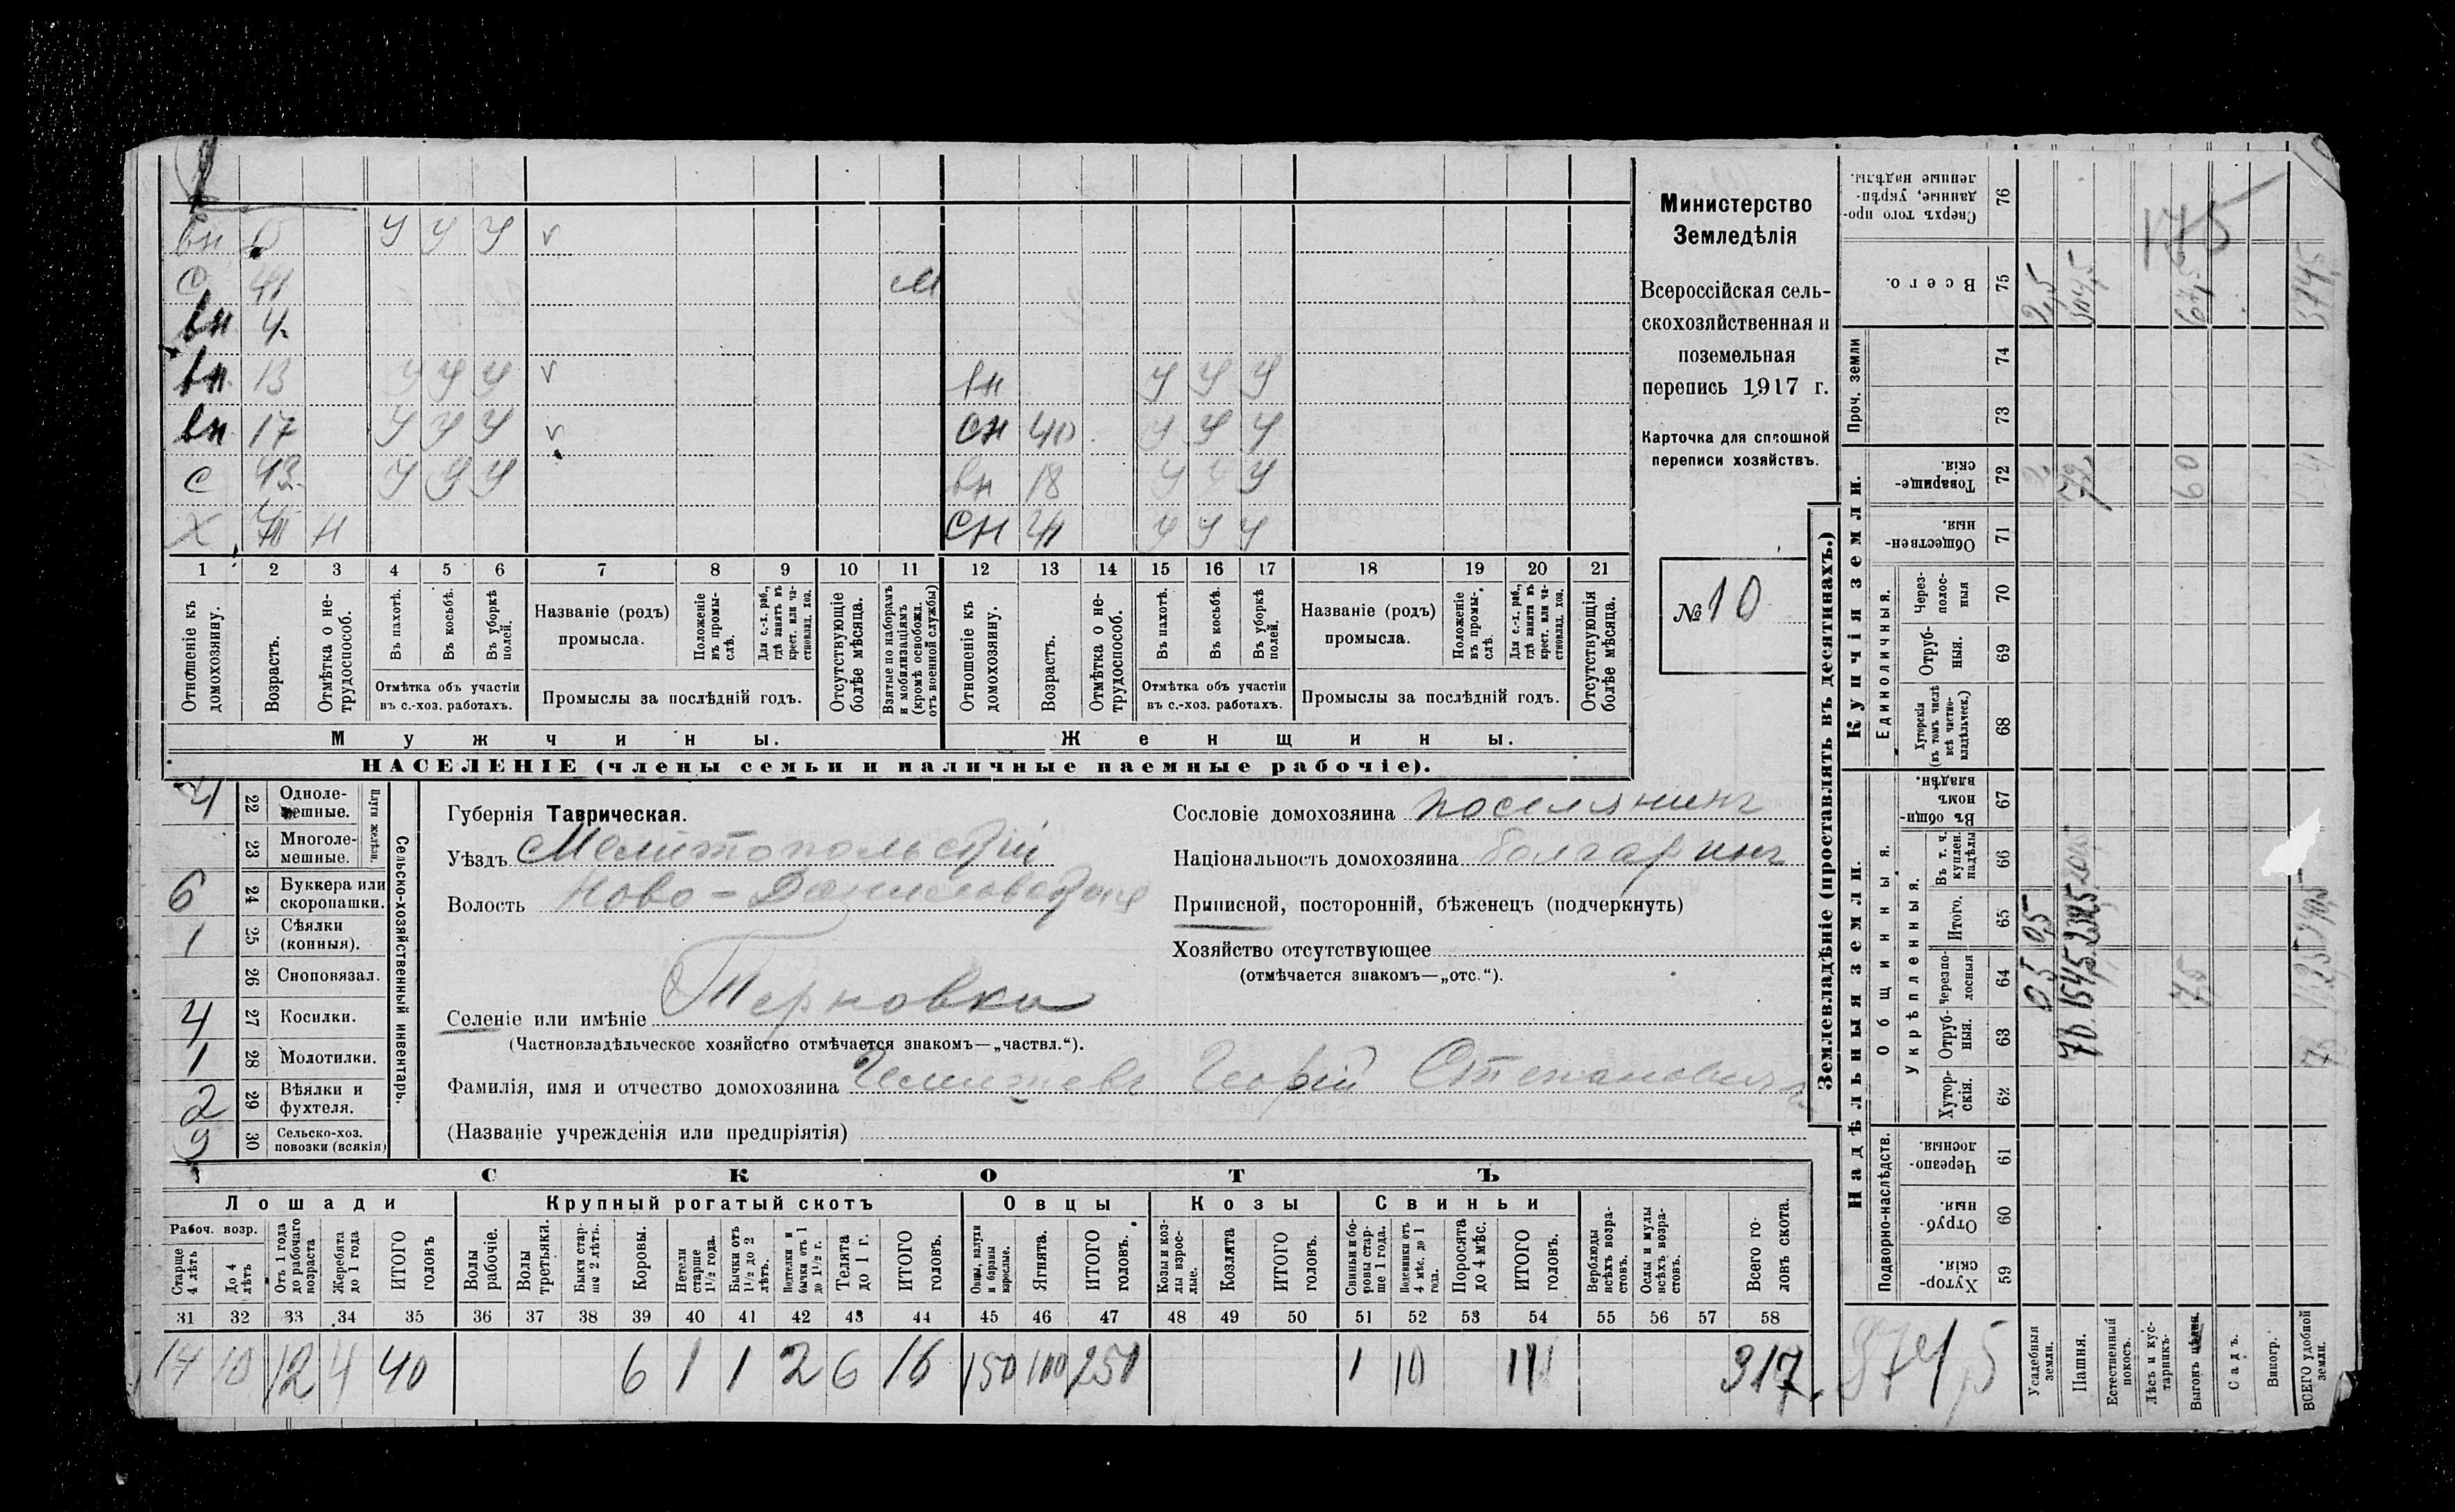 вн У У У v
С 41 М
вн 4
вн 13 У У У v вн У У У
вн 17 У У У v сн 40 У У У
С 43 У У У вн 18 У У У
Х Н СН 41 У У У
1 2 3 4 5 6 7 8 9 10 11 12 13 14 15 16 17 18 19 20 21
Отношеніе къ домохозяину.
Возрастъ.
Отмѣтка о нетрудоспособ.
Въ пахотѣ.
Въ косьбѣ.
Въ уборкѣ полей.
Отмѣтка объ участіи
въ с.-хоз. работахъ.
Названіе (родъ)
промысла.
Положеніе въ промыслѣ.
Для с.-х. раб., гдѣ занятъ въ крест. или частновлад. хоз.
Промыслы за послѣдній годъ.
Отсутствующіе болѣе мѣсяца.
Взятые по наборамъ и мобилизаціямъ (кромѣ освобожд. отъ военной службы)
Отношеніе къ домохозяину.
Возрастъ.
Отмѣтка о нетрудоспособ.
Въ пахотѣ.
Въ косьбѣ.
Въ уборкѣ полей.
Отмѣтка объ участіи
въ с.-хоз. работахъ.
Названіе (родъ)
промысла.
Положеніе въ промыслѣ.
Для с.-х. раб., гдѣ занятъ въ крест. или частновлад. хоз.
Промыслы за послѣдній годъ.
Отсутствующія болѣе мѣсяца.
Мужчины. Женщины.
НАСЕЛЕНІЕ (члены семьи и наличные наемные рабочіе).
Министерство
Земледѣлія
Всероссійская сель-
скохозяйственная и
поземельная
перепись 1917 г.
Карточка для сплошной
переписи хозяйствъ.
№ 10
4 22 Одноле-
мешные.
23 Многоле-
мешные.
Плуги желѣзн.
6 24 Буккера или
скоропашки.
1 25 Сѣялки
(конныя).
26 Сноповязал.
4 27 Косилки.
1 28 Молотилки.
2 29 Вѣялки и
фухтеля.
9 30 Сельско-хоз.
повозки (всякія)
Сельско-хозяйственный инвентарь.
Губернія Таврическая.
Уѣздъ Мелитопольскій
Волость Ново-Даниловская
Селеніе или имѣніе Терновка
(Частновладѣльческое хозяйство отмѣчается знакомъ—„частвл.“).
Фамилія, имя и отчество домохозяина Георгій Степановичъ
(Названіе учрежденія или предпріятія)
Сословіе домохозяина поселянинъ
Національность домохозяина болгаринъ
Приписной, посторонній, бѣженецъ (подчеркнуть)
Хозяйство отсутствующее
(отмѣчается знакомъ—„отс.“).
СКОТЪ
Лошади Крупный рогатый скотъ Овцы Козы Свиньи
Рабоч. возр.
Старше 4 лѣтъ
До 4 лѣтъ
Отъ 1 года до рабочаго возраста
Жеребята до 1 года
ИТОГО головъ
Волы рабочіе.
Волы третьяки.
Быки старше 2 лѣтъ.
Коровы.
Нетели старше 1½ года.
Бычки отъ 1½ до 2 лѣтъ.
Нетелки и бычки отъ 1 до 1½ г.
Телята до 1 г.
ИТОГО головъ.
Овцы, валухи и бараны взрослые.
Ягнята.
ИТОГО головъ.
Козы и козлы взрослые.
Козлята
ИТОГО головъ.
Свиньи и боровы старше 1 года.
Подсвинки отъ 4 мѣс. до 1 года.
Поросята до 4 мѣс.
ИТОГО головъ.
Верблюды всѣхъ возрастовъ.
Ослы и мулы всѣхъ возрастовъ.
Всего головъ скота.
31 32 33 34 35 36 37 38 39 40 41 42 43 44 45 46 47 48 49 50 51 52 53 54 55 56 57 58
14 10 12 4 40 6 1 1 2 6 16 150 100 250 1 10 11 317
Землевладѣніе (проставлять въ десятинахъ.)
Надѣльныя земли. Купчія земли.
Подворно-наслѣдств. Общинныя. Единоличныя. Проч. земли
Укрѣпленныя.
Сверхъ того проданные, укрѣпленные надѣлы. 76
Всего. 75 2,5 304,5 67,5 374,5
175
74
73
Товарищескія. 72 2 72 60
Общественныя. 71
Черезполосныя 70
Отрубныя. 69
Хуторскія (въ томъ числѣ всѣ частновладѣльческ.) 68
Въ общинномъ владѣн. 67
Въ т. ч. куплен. надѣлы 66
Итого. 65 0,5 232,5
Черезполосныя 64 0,5 154,5 7,5
Отрубныя. 63 70
Хуторскія. 62
Черезполосныя 61
Отрубныя. 60
Хуторскія. 59
374,5
Усадебныя земли.
Пашня.
Естественный покосъ.
Лѣсъ и кустарникъ.
Выгонъ
Садъ.
Виногр.
ВСЕГО удобной земли.